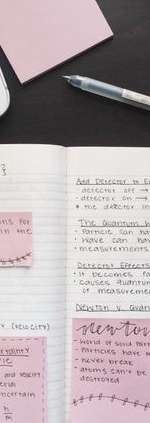 ons for
in the
(velocity)
certainty
and velocity
uncertain
h
m
Add Detector to E
detector off →
detector on →
the detector in
The Quantum
Particle can ha
Wave can hav
measurements
Detector Effects
it becomes fo
causes quantum
of measureme
Newton v. Quan
Newton
World of solid Part
Particles have
never break
atoms can't be
destroyed